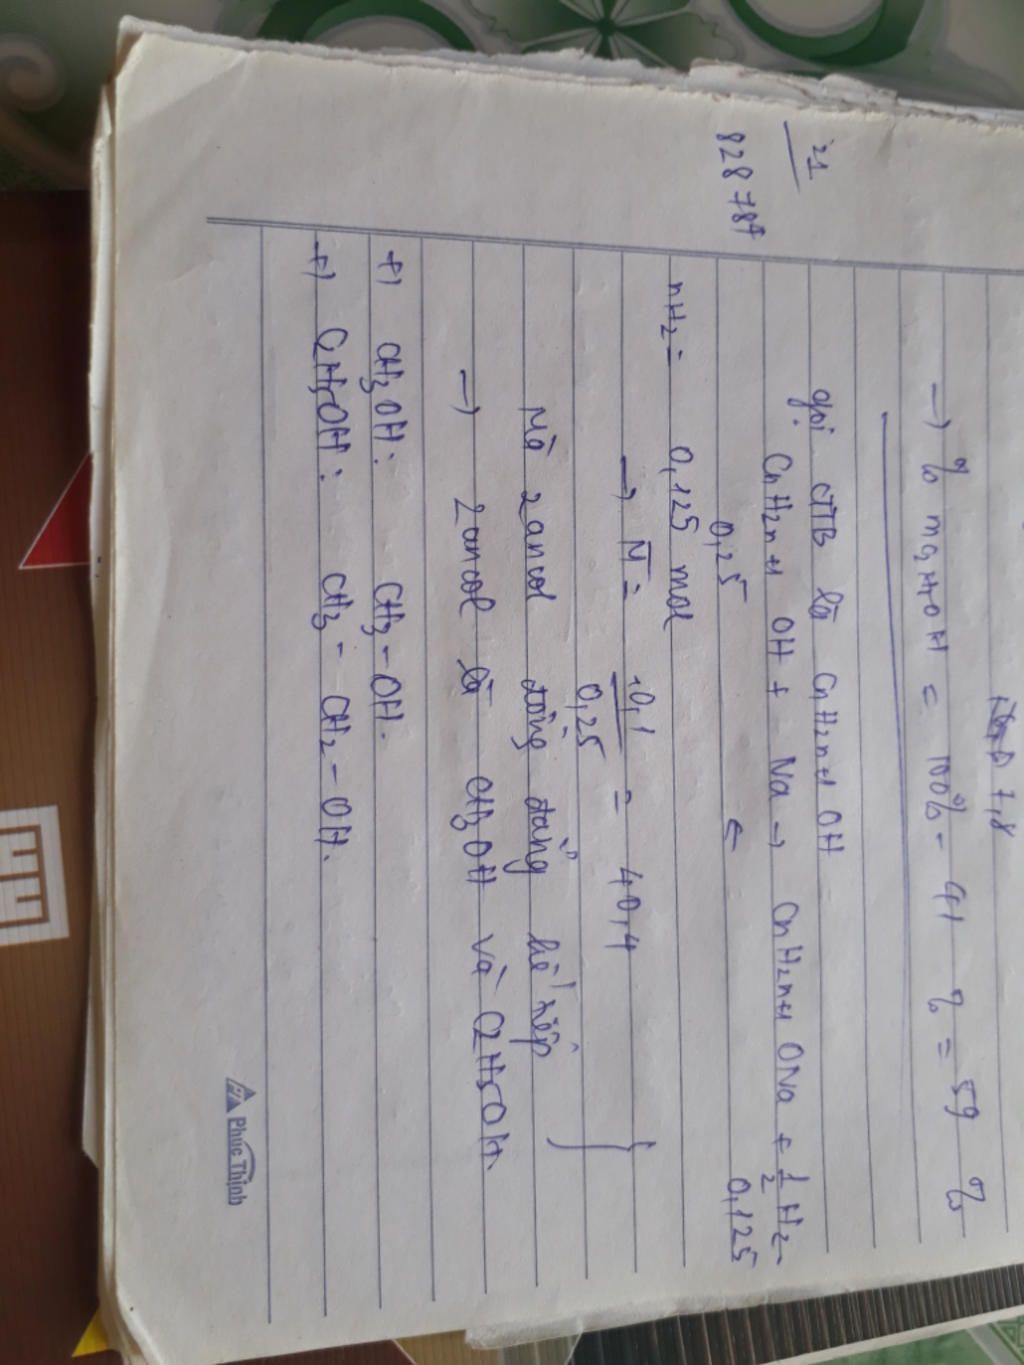 → % mC2H5OH = 100% - 41 % = 59 %
21
828784
gọi CTTB là CnH2n+1 OH
CnH2n+1 OH + Na → CnH2n+1 ONa + 1/2 H2
0,25 ← 0,125
nH2 = 0,125 mol
→ M̅ = 10,1 / 0,25 = 40,4
Mà 2 ancol đồng đẳng kế tiếp
→ 2 ancol là CH3OH và C2H5OH
+) CH3OH: CH3 - OH.
+) C2H5OH: CH3 - CH2 - OH.
Phuc Thinh